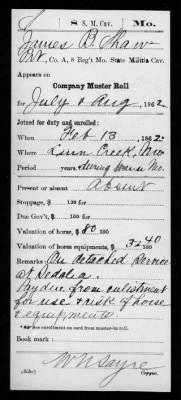 S | 8 S. M. Cav. | Mo.
James B. Shaw
Pvt, Co. A, 8 Reg't Mo. State Militia Cav.
Appears on
Company Muster Roll
for July & Aug, 1862
Joined for duty and enrolled:
When Feb 13, 1862.
Where Linn Creek, Mo
Period years, during war in Mo.
Present or absent Absent
Stoppage, $ 100 for
Due Gov't, $ 100 for
Valuation of horse, $ 80 100
Valuation of horse equipments, $ 32 40 100
Remarks: On detached service
at Sedalia.
Pay due from enlistment
for use & risk of horse
& equipments.
*See enrollment on card from muster-in roll.
Book mark:
W N Sayre
(858c) Copyist.